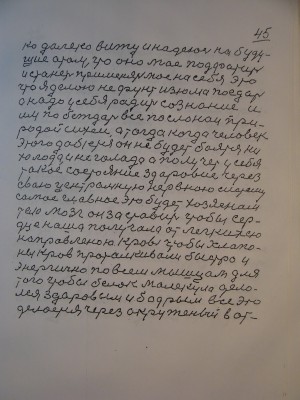 45
ко далеко вижу и надеюсь на буду-
щие атом, что оно мае поддержит
и станет применят мое на себя. Это
что я делою не даунт из дома
он надо у себя радит сознание и
им победит все послокои при-
родай силой, а тогда когда человек
этого дабется он не будет боятся ни
холода ни голода а получет у себя
такое состояние здаровие через
свою централную нервною систему
самое главное это будет хозяенам
тело мозг он заставит чтобы сер-
дце наша получала от легких ею
направленою кров чтобы клапа-
ны кров праталкивали быстро и
энергично по всем мышцам для
того чтобы белок малекула дело-
лся здаровым и бодрым все это
делается через окруженый в от-